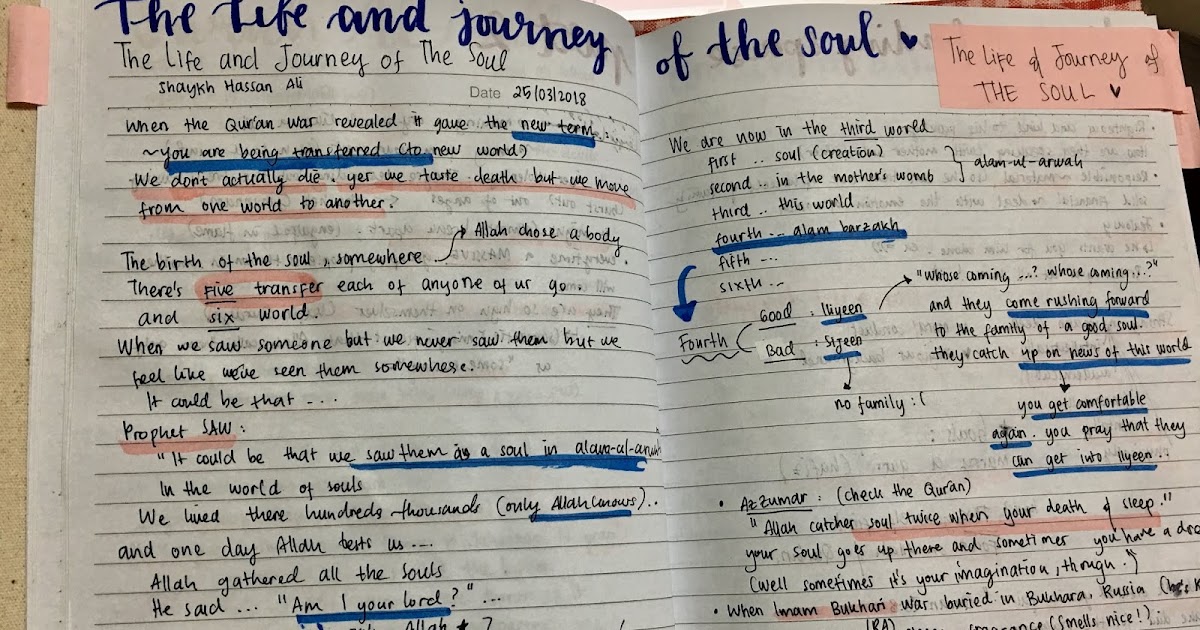 The Life and journey of the soul
The Life and Journey of The Soul
Shaykh Hassan Ali
Date 25/03/2018
When the Qur'an was revealed it gave the new term...
~ you are being transferred (to new world)
We don't actually die. yer we taste death but we move
from one world to another.
Allah chose a body
The birth of the soul, somewhere
There's five transfer each of anyone of us go.
and six world.
When we saw someone but we never saw them but we
feel like we've seen them somewhere.
It could be that ....
Prophet SAW:
"It could be that we saw them as a soul in
In the world of souls
We lived there hundreds thousands (only Allah knows)..
and one day Allah tests us ....
Allah gathered all the souls
He said ... "Am I your lord?" ...
Allah
The Life & Journey of
THE SOUL
We are now in the third world
first .. soul (creation)
second .. in the mother's womb
alam-ul-arwah
third .. this world
fourth ... alam barzakh
fifth ...
sixth ...
Fourth
Good : Iliyeen
Bad : Sijeen
no family :(
"whose coming ...? whose coming...?"
and they come rushing forward
to the family of a good soul.
they catch up on news of this world
you get comfortable
again. you pray that they
can get into Iliyeen..
• Az Zumar : (check the Qur'an)
"Allah catches soul twice when your death & sleep."
your soul goes up there and sometimes you have a
(well sometimes it's your imagination, though.)
• When Imam Bukhari was buried in Bukhara, Russia
(RA)
(smells nice!)